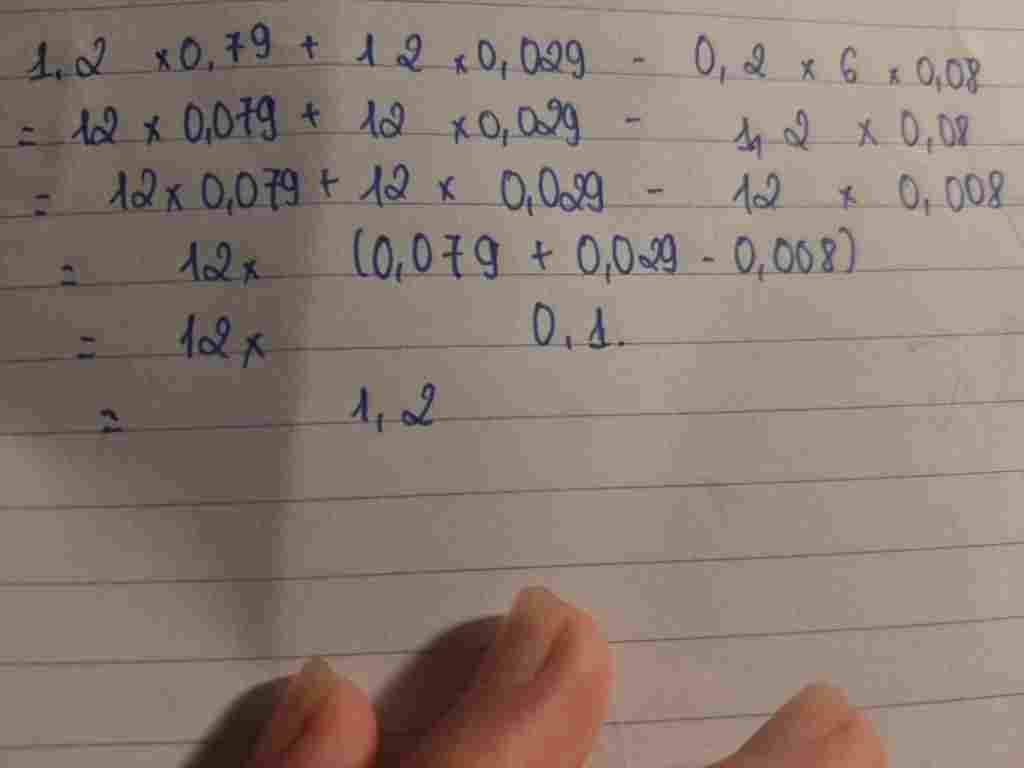 1,2 × 0,79 + 12 × 0,029 - 0,2 × 6 × 0,08
= 12 × 0,079 + 12 × 0,029 - 1,2 × 0,08
= 12 × 0,079 + 12 × 0,029 - 12 × 0,008
= 12 × (0,079 + 0,029 - 0,008)
= 12 × 0,1.
= 1,2